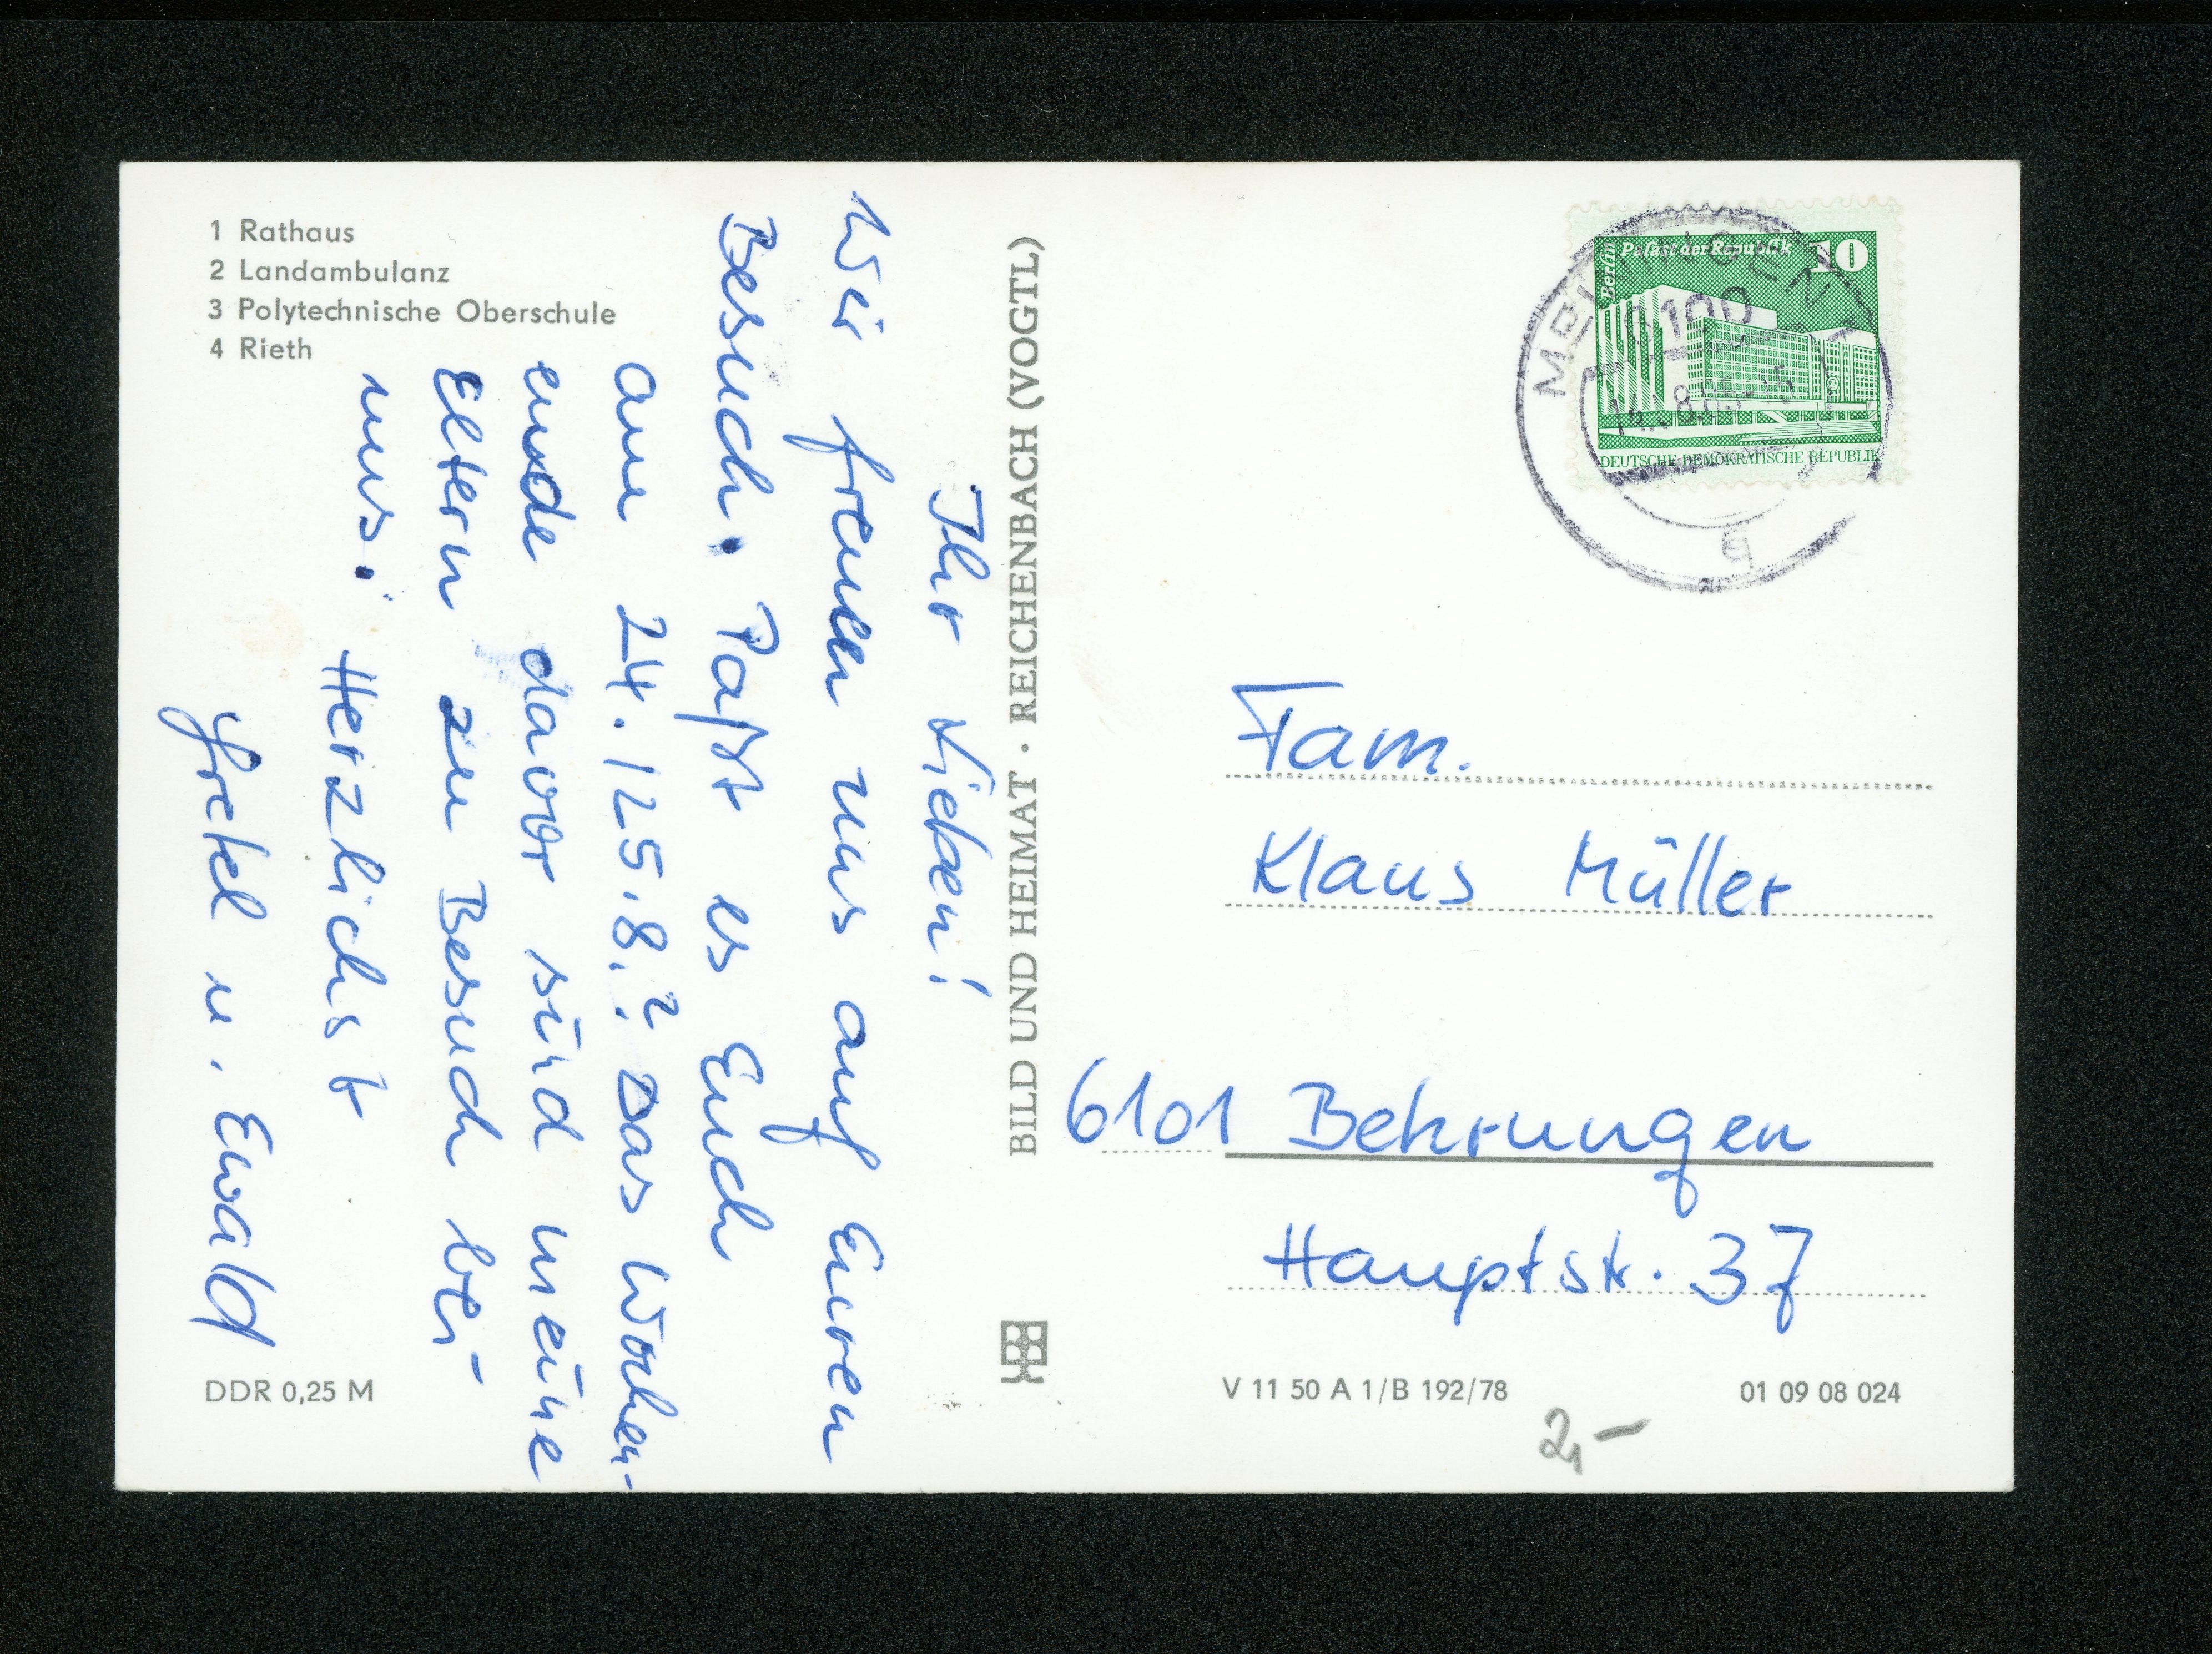 1 Rathaus
2 Landambulanz
3 Polytechnische Oberschule
4 Rieth
Ihr Lieben!
Wir freuen uns auf Euren
Besuch. Paßt es Euch
am 24./25.8.? Das Wochen-
ende davor sind meine
Eltern zu Besuch bei
uns. Herzlichst
Gretel u. Ewald
DDR 0,25 M
BILD UND HEIMAT · REICHENBACH (VOGTL)
Berlin Palast der Republik 10
DEUTSCHE DEMOKRATISCHE REPUBLIK
MEININGEN 1
6100
Fam.
Klaus Müller
6101 Behrungen
Hauptstr. 37
V 11 50 A 1/B 192/78
01 09 08 024
2,-